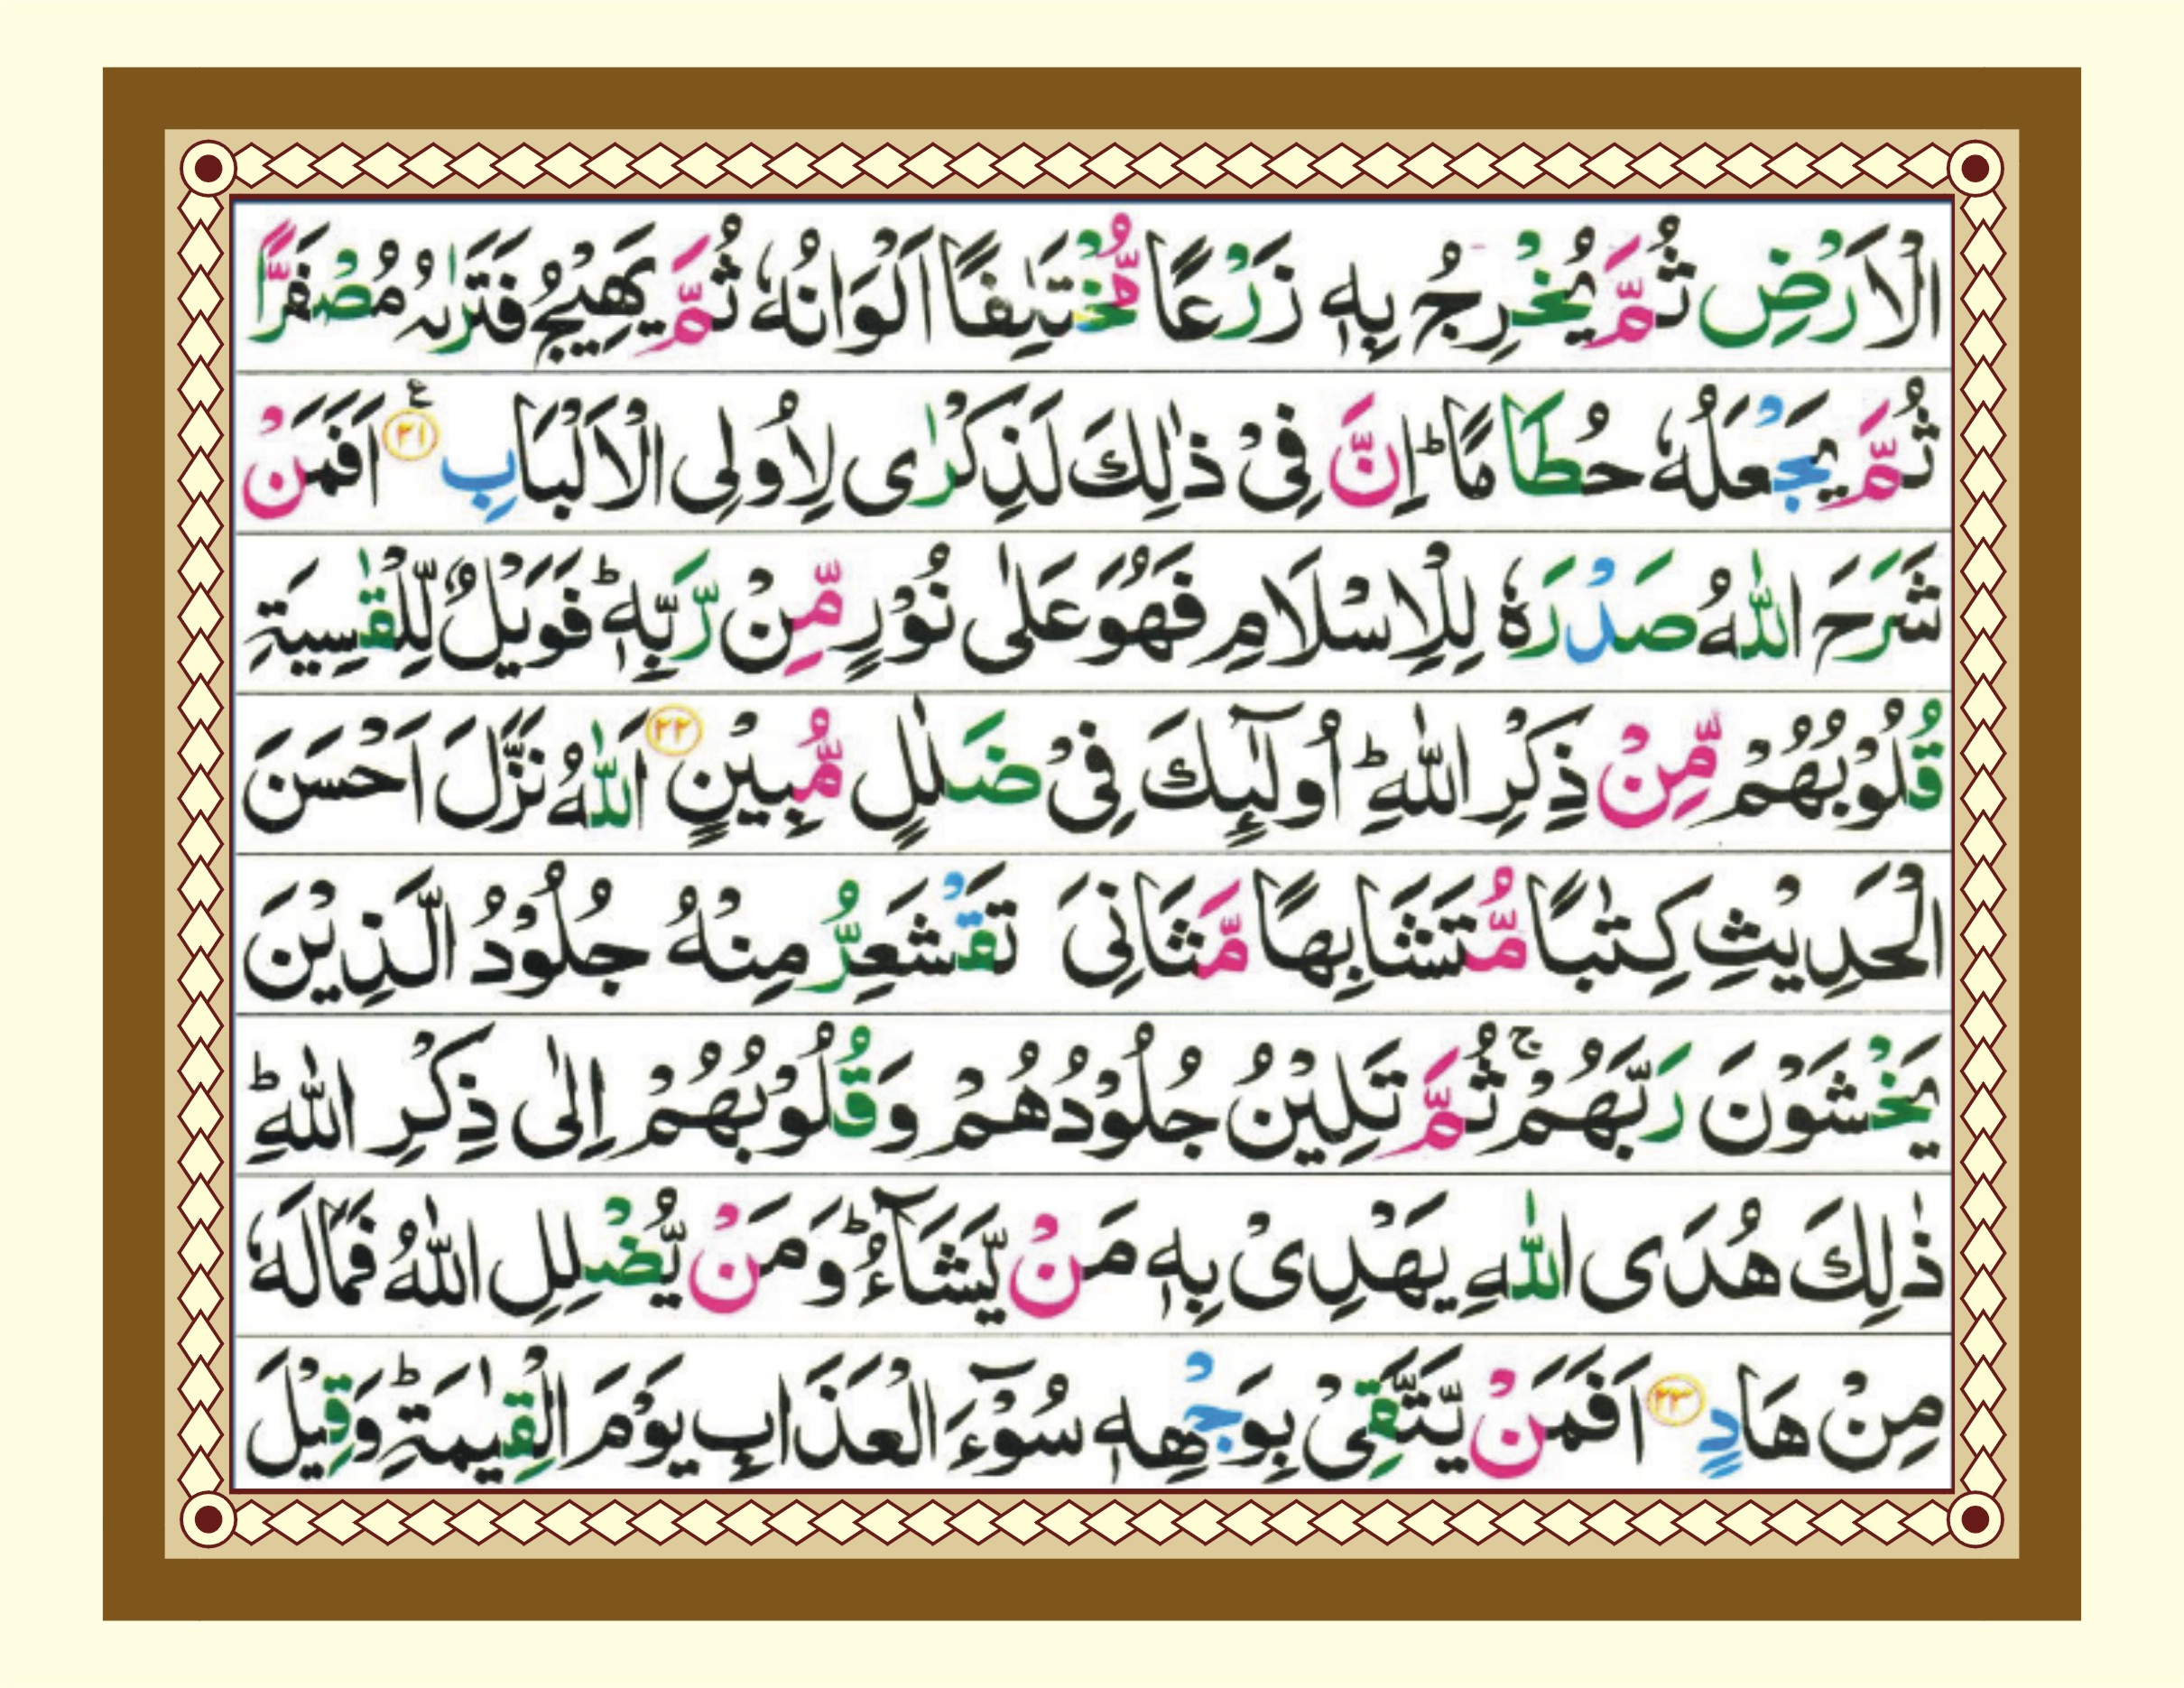 الْاَرْضِ ثُمَّ يُخْرِجُ بِهٖ زَرْعًا مُّخْتَلِفًا اَلْوَانُهٗ ثُمَّ يَهِيْجُ فَتَرٰىهُ مُصْفَرًّا
ثُمَّ يَجْعَلُهٗ حُطَامًا ؕ اِنَّ فِيْ ذٰلِكَ لَذِكْرٰى لِاُولِى الْاَلْبَابِ ۲۱ ع اَفَمَنْ
شَرَحَ اللّٰهُ صَدْرَهٗ لِلْاِسْلَامِ فَهُوَ عَلٰى نُوْرٍ مِّنْ رَّبِّهٖ ؕ فَوَيْلٌ لِّلْقٰسِيَةِ
قُلُوْبُهُمْ مِّنْ ذِكْرِ اللّٰهِ ؕ اُولٰٓئِكَ فِيْ ضَلٰلٍ مُّبِيْنٍ ۲۲ اَللّٰهُ نَزَّلَ اَحْسَنَ
الْحَدِيْثِ كِتٰبًا مُّتَشَابِهًا مَّثَانِىَ تَقْشَعِرُّ مِنْهُ جُلُوْدُ الَّذِيْنَ
يَخْشَوْنَ رَبَّهُمْ ۚ ثُمَّ تَلِيْنُ جُلُوْدُهُمْ وَقُلُوْبُهُمْ اِلٰى ذِكْرِ اللّٰهِ ؕ
ذٰلِكَ هُدَى اللّٰهِ يَهْدِىْ بِهٖ مَنْ يَّشَآءُ ؕ وَمَنْ يُّضْلِلِ اللّٰهُ فَمَا لَهٗ
مِنْ هَادٍ ۲۳ اَفَمَنْ يَّتَّقِىْ بِوَجْهِهٖ سُوْٓءَ الْعَذَابِ يَوْمَ الْقِيٰمَةِ ؕ وَقِيْلَ